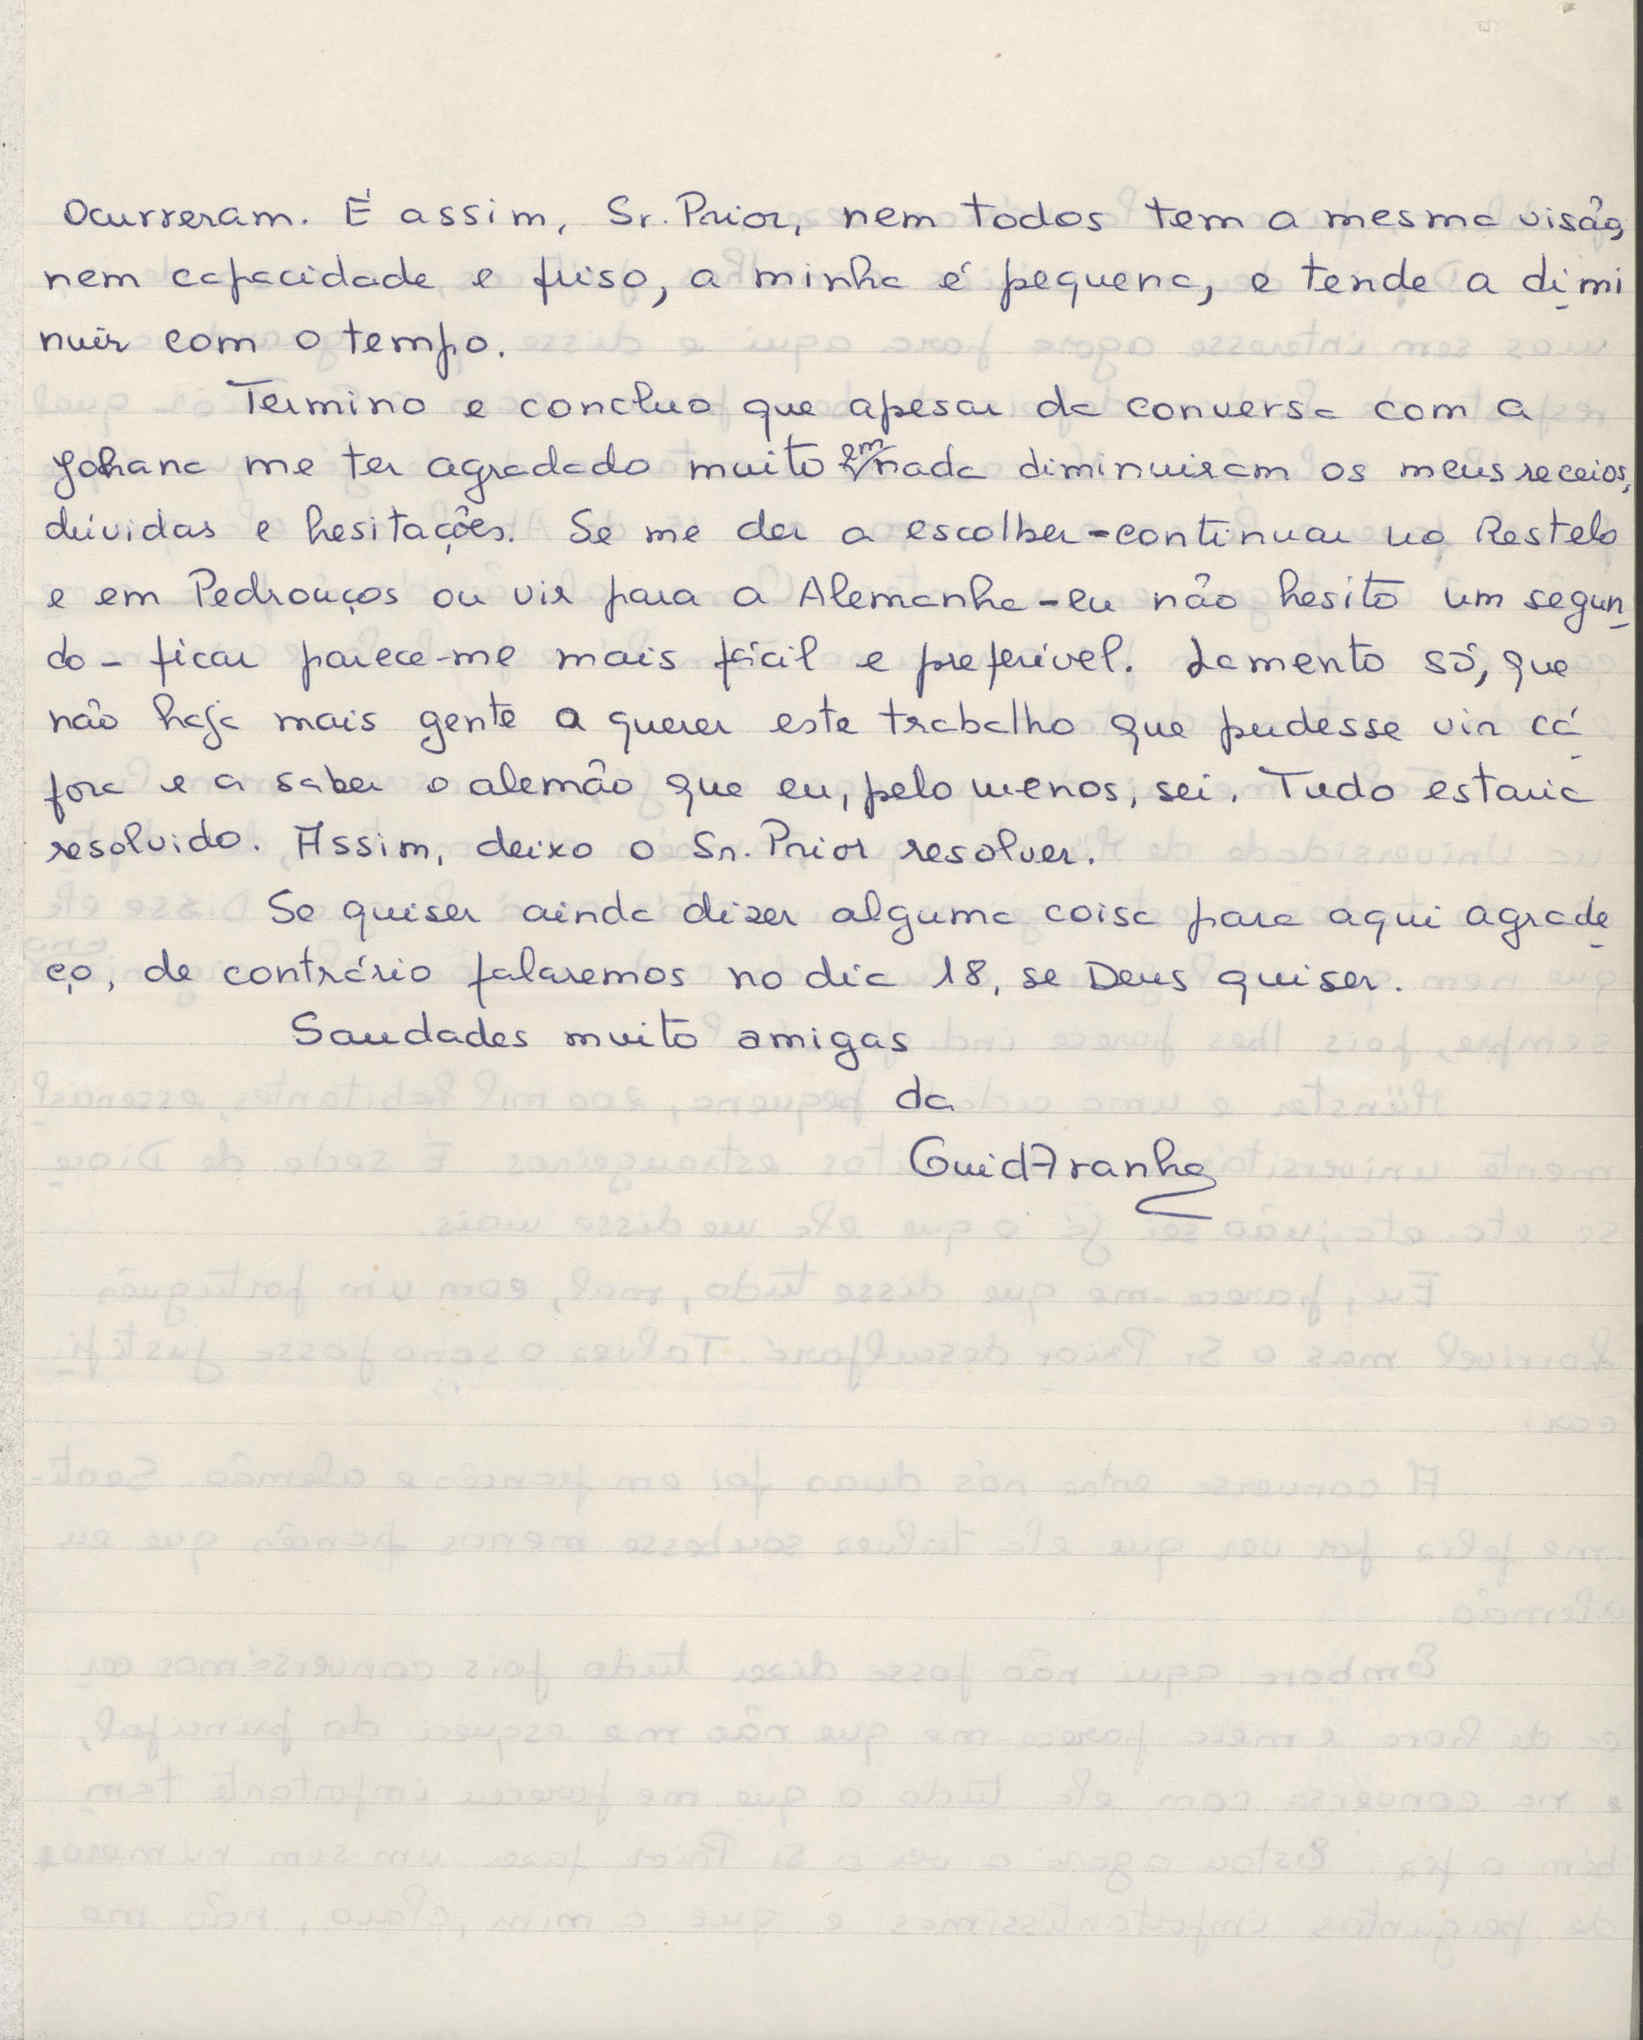 ocurreram. É assim, Sr. Prior, nem todos tem a mesma visão,
nem capacidade e juiso, a minha é pequena, e tende a dimi
nuir com o tempo.
Termino e concluo que apesar da conversa com a
Johana me ter agradado muito em nada diminuiram os meus receios,
dúvidas e hesitações. Se me der a escolher - continuar no Restelo
e em Pedrouços ou vir para a Alemanha - eu não hesito um segun
do - ficar parece-me mais fácil e preferível. Lamento só, que
não haja mais gente a querer este trabalho que pudesse vir cá
fora e a saber o alemão que eu, pelo menos, sei. Tudo estaria
resolvido. Assim, deixo o Sr. Prior resolver.
Se quiser ainda dizer alguma coisa para aqui agrade
ço, de contrário falaremos no dia 18, se Deus quiser.
Saudades muito amigas
da
GuidAranha